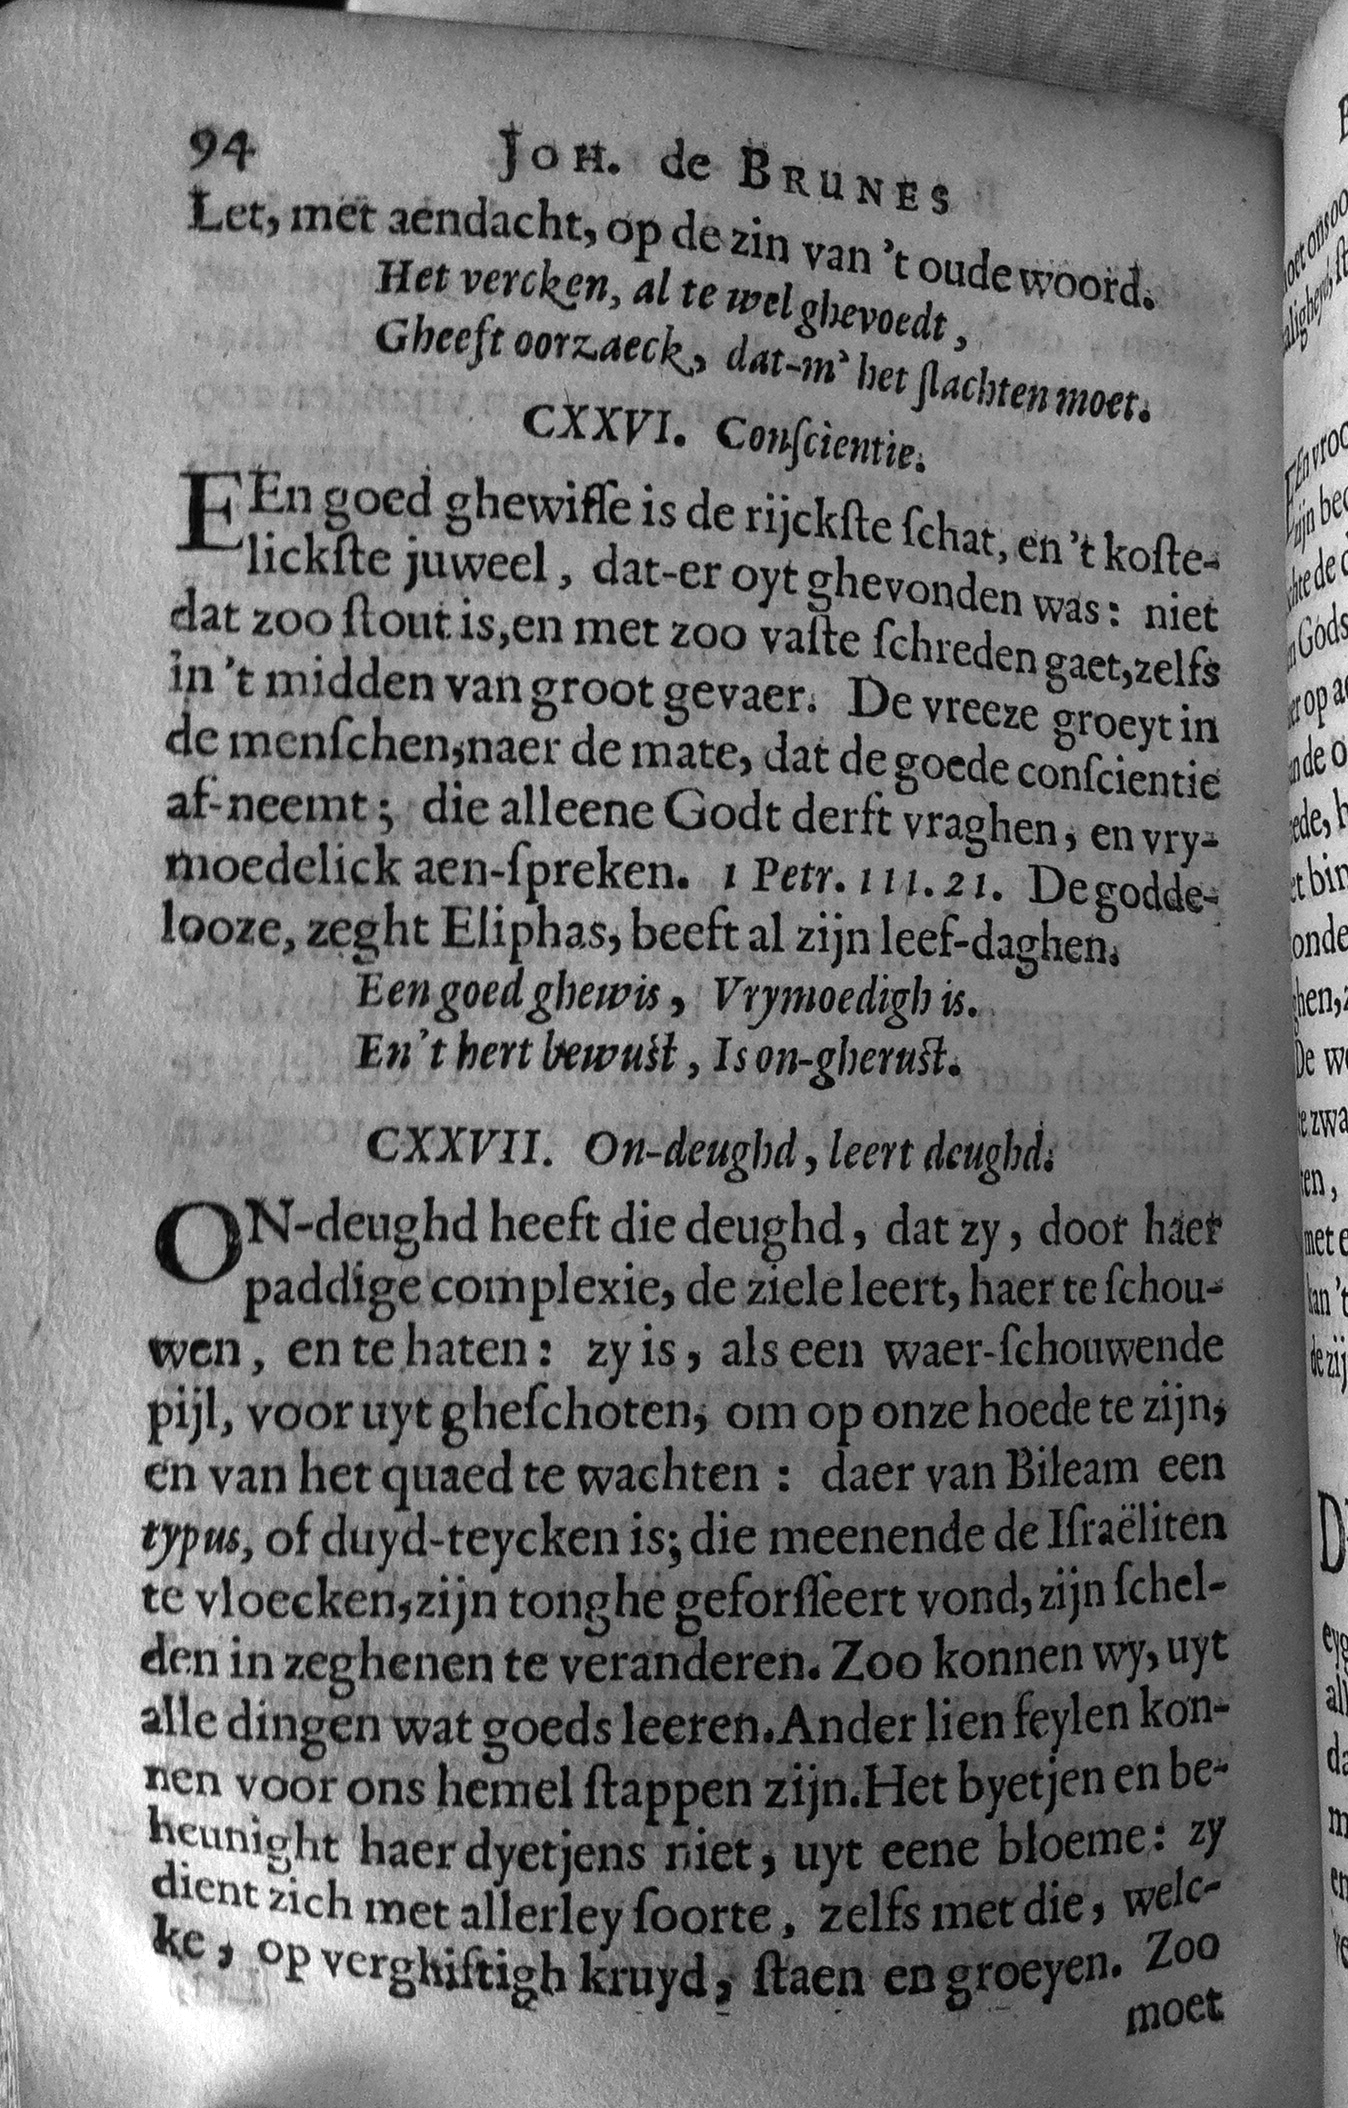 94 JOH. de BRUNES
Let, met aendacht, op de zin van 't oude woord.
Het vercken, al te wel ghevoedt,
Gheeft oorzaeck, dat-m' het ſlachten moet.
CXXVI. Conſcientie.
EEn goed ghewiſſe is de rijckſte ſchat, en 't koſte-
lickſte juweel, dat-er oyt ghevonden was: niet
dat zoo ſtout is, en met zoo vaſte ſchreden gaet, zelfs
in 't midden van groot gevaer. De vreeze groeyt in
de menſchen, naer de mate, dat de goede conſcientie
af-neemt; die alleene Godt derft vraghen, en vry-
moedelick aen-ſpreken. 1 Petr. III. 21. De godde-
looze, zeght Eliphas, beeft al zijn leef-daghen.
Een goed ghewis, Vrymoedigh is.
En 't hert bewuſt, Is on-gheruſt.
CXXVII. On-deughd, leert deughd.
ON-deughd heeft die deughd, dat zy, door haer
paddige complexie, de ziele leert, haer te ſchou-
wen, en te haten: zy is, als een waer-ſchouwende
pijl, voor uyt gheſchoten, om op onze hoede te zijn,
en van het quaed te wachten: daer van Bileam een
typus, of duyd-teycken is; die meenende de Iſraëliten
te vloecken, zijn tonghe geforſſeert vond, zijn ſchel-
den in zeghenen te veranderen. Zoo konnen wy, uyt
alle dingen wat goeds leeren. Ander lien feylen kon-
nen voor ons hemel ſtappen zijn. Het byetjen en be-
heunight haer dyetjens niet, uyt eene bloeme: zy
dient zich met allerley ſoorte, zelfs met die, welc-
ke, op verghiftigh kruyd, ſtaen en groeyen. Zoo
moet